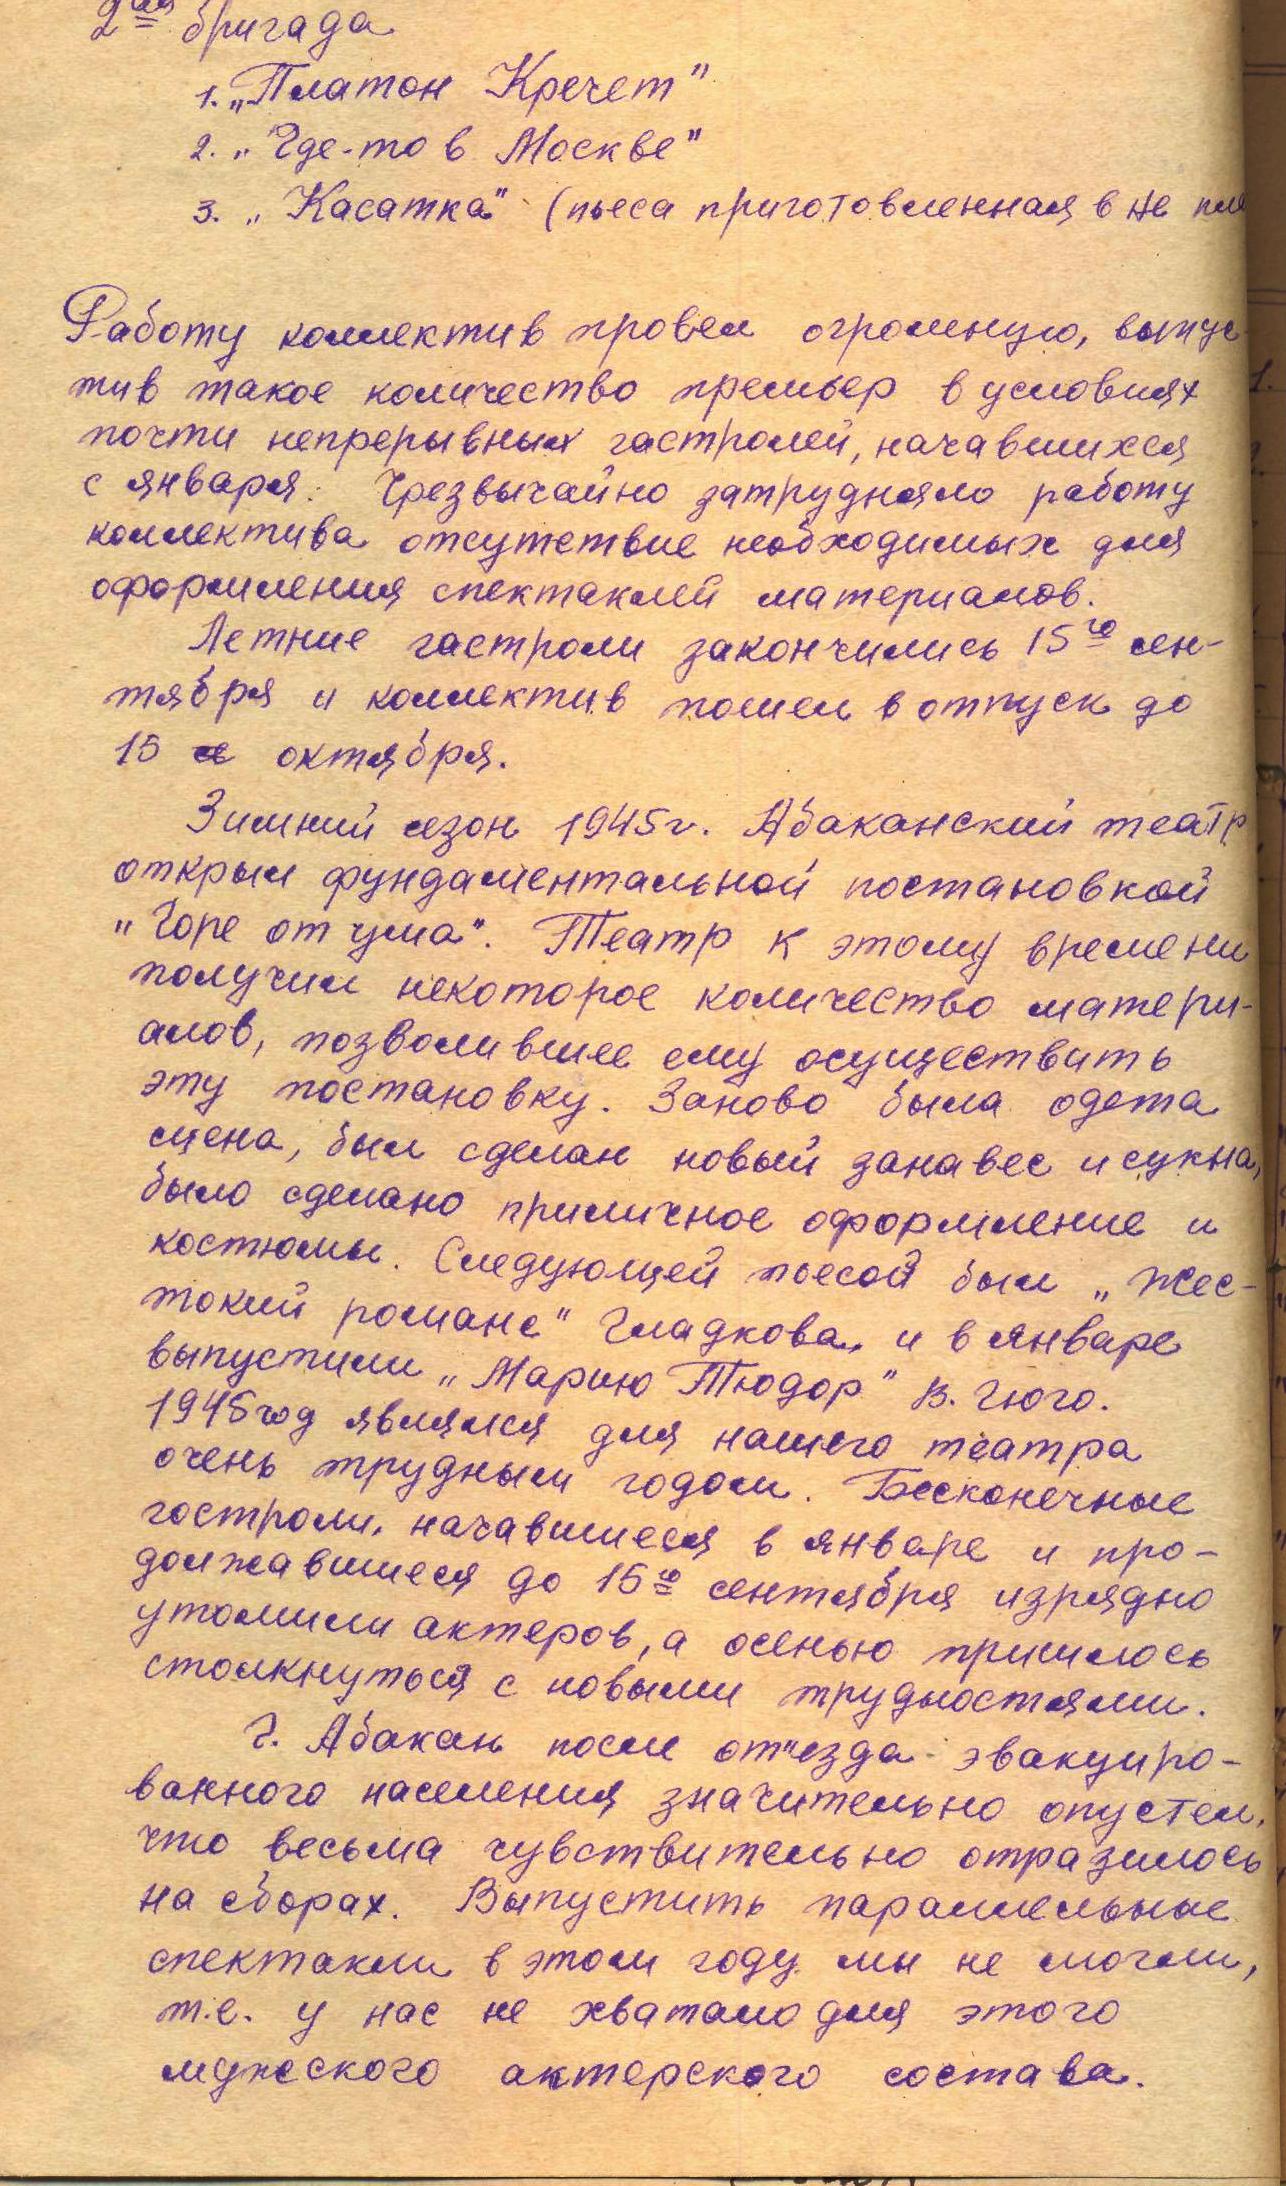 2ая бригада
1. „Платон Кречет"
2. „Где-то в Москве"
3. „Касатка" (пьеса приготовленная в не
Работу коллектив провел огромную, выпус-
тив такое количество премьер в условиях
почти непрерывных гастролей, начавшихся
с января. Чрезвычайно затрудняло работу
коллектива отсутствие необходимых для
оформления спектаклей материалов.
Летние гастроли закончились 15го сен-
тября и коллектив пошел в отпуск до
15 октября.
Зимний сезон 1945г. Абаканский театр
открыл фундаментальной постановкой
„Горе от ума". Театр к этому времени
получил некоторое количество матери-
алов, позволившее ему осуществить
эту постановку. Заново была одета
сцена, был сделан новый занавес и сукна,
было сделано приличное оформление и
костюмы. Следующей пьесой был „Жес-
токий романс" Гладкова, и в январе
выпустили „Марию Тюдор" В. Гюго.
1945 год являлся для нашего театра
очень трудным годом. Бесконечные
гостроли, начавшиеся в январе и про-
должавшиеся до 15го сентября изрядно
утомили актеров, а осенью пришлось
столкнуться с новыми трудностями.
Г. Абакан после от"езда эвакуиро-
ванного населения значительно опустел,
что весьма чувствительно отразилось
на сборах. Выпустить параллельные
спектакли в этом году мы не могли,
т.е. у нас не хватало для этого
мужского актерского состава.